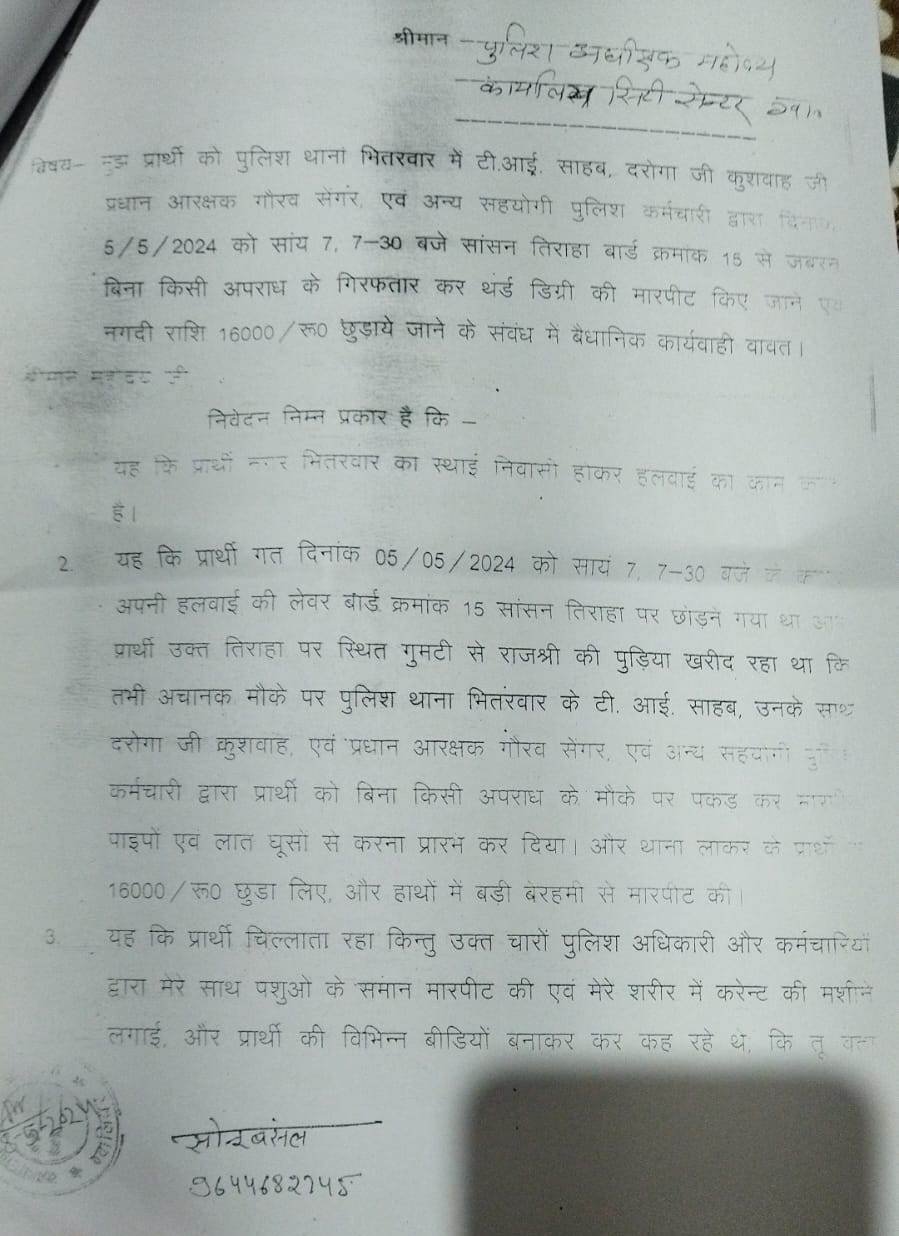 श्रीमान - पुलिश अधीक्षक महोदय
कार्यालय सिटी सेन्टर
विषय- मुझ प्रार्थी को पुलिश थाना भितरवार में टी.आई. साहब, दरोगा जी कुशवाह जी
प्रधान आरक्षक गौरव सेंगर, एवं अन्य सहयोगी पुलिश कर्मचारी द्वारा दिनांक
5/5/2024 को सांय 7, 7-30 बजे सांसन तिराहा बार्ड क्रमांक 15 से जबरन
बिना किसी अपराध के गिरफतार कर थर्ड डिग्री की मारपीट किए जाने एवं
नगदी राशि 16000/रू0 छुड़ाये जाने के संवंध में बैधानिक कार्यवाही वावत।
श्रीमान महोदय जी
निवेदन निम्न प्रकार है कि -
यह कि प्रार्थी नगर भितरवार का स्थाई निवासी होकर हलवाई का काम
है।
2. यह कि प्रार्थी गत दिनांक 05/05/2024 को सायं 7, 7-30 बजे
अपनी हलवाई की लेवर बार्ड क्रमांक 15 सांसन तिराहा पर छोड़ने गया था
प्रार्थी उक्त तिराहा पर स्थित गुमटी से राजश्री की पुड़िया खरीद रहा था कि
तभी अचानक मौके पर पुलिश थाना भितरवार के टी. आई. साहब, उनके साथ
दरोगा जी कुशवाह, एवं प्रधान आरक्षक गौरव सेंगर, एवं अन्य सहयोगी
कर्मचारी द्वारा प्रार्थी को बिना किसी अपराध के मौके पर पकड़ कर
पाइपों एवं लात घूसों से करना प्रारंभ कर दिया। और थाना लाकर के प्रार्थी
16000/रू0 छुडा लिए, और हाथों में बड़ी बेरहमी से मारपीट की।
3. यह कि प्रार्थी चिल्लाता रहा किन्तु उक्त चारों पुलिश अधिकारी और कर्मचारियों
द्वारा मेरे साथ पशुओ के समान मारपीट की एवं मेरे शरीर में करेन्ट की मशीन
लगाई, और प्रार्थी की विभिन्न बीडियों बनाकर कर कह रहे थे, कि तू
बंसल